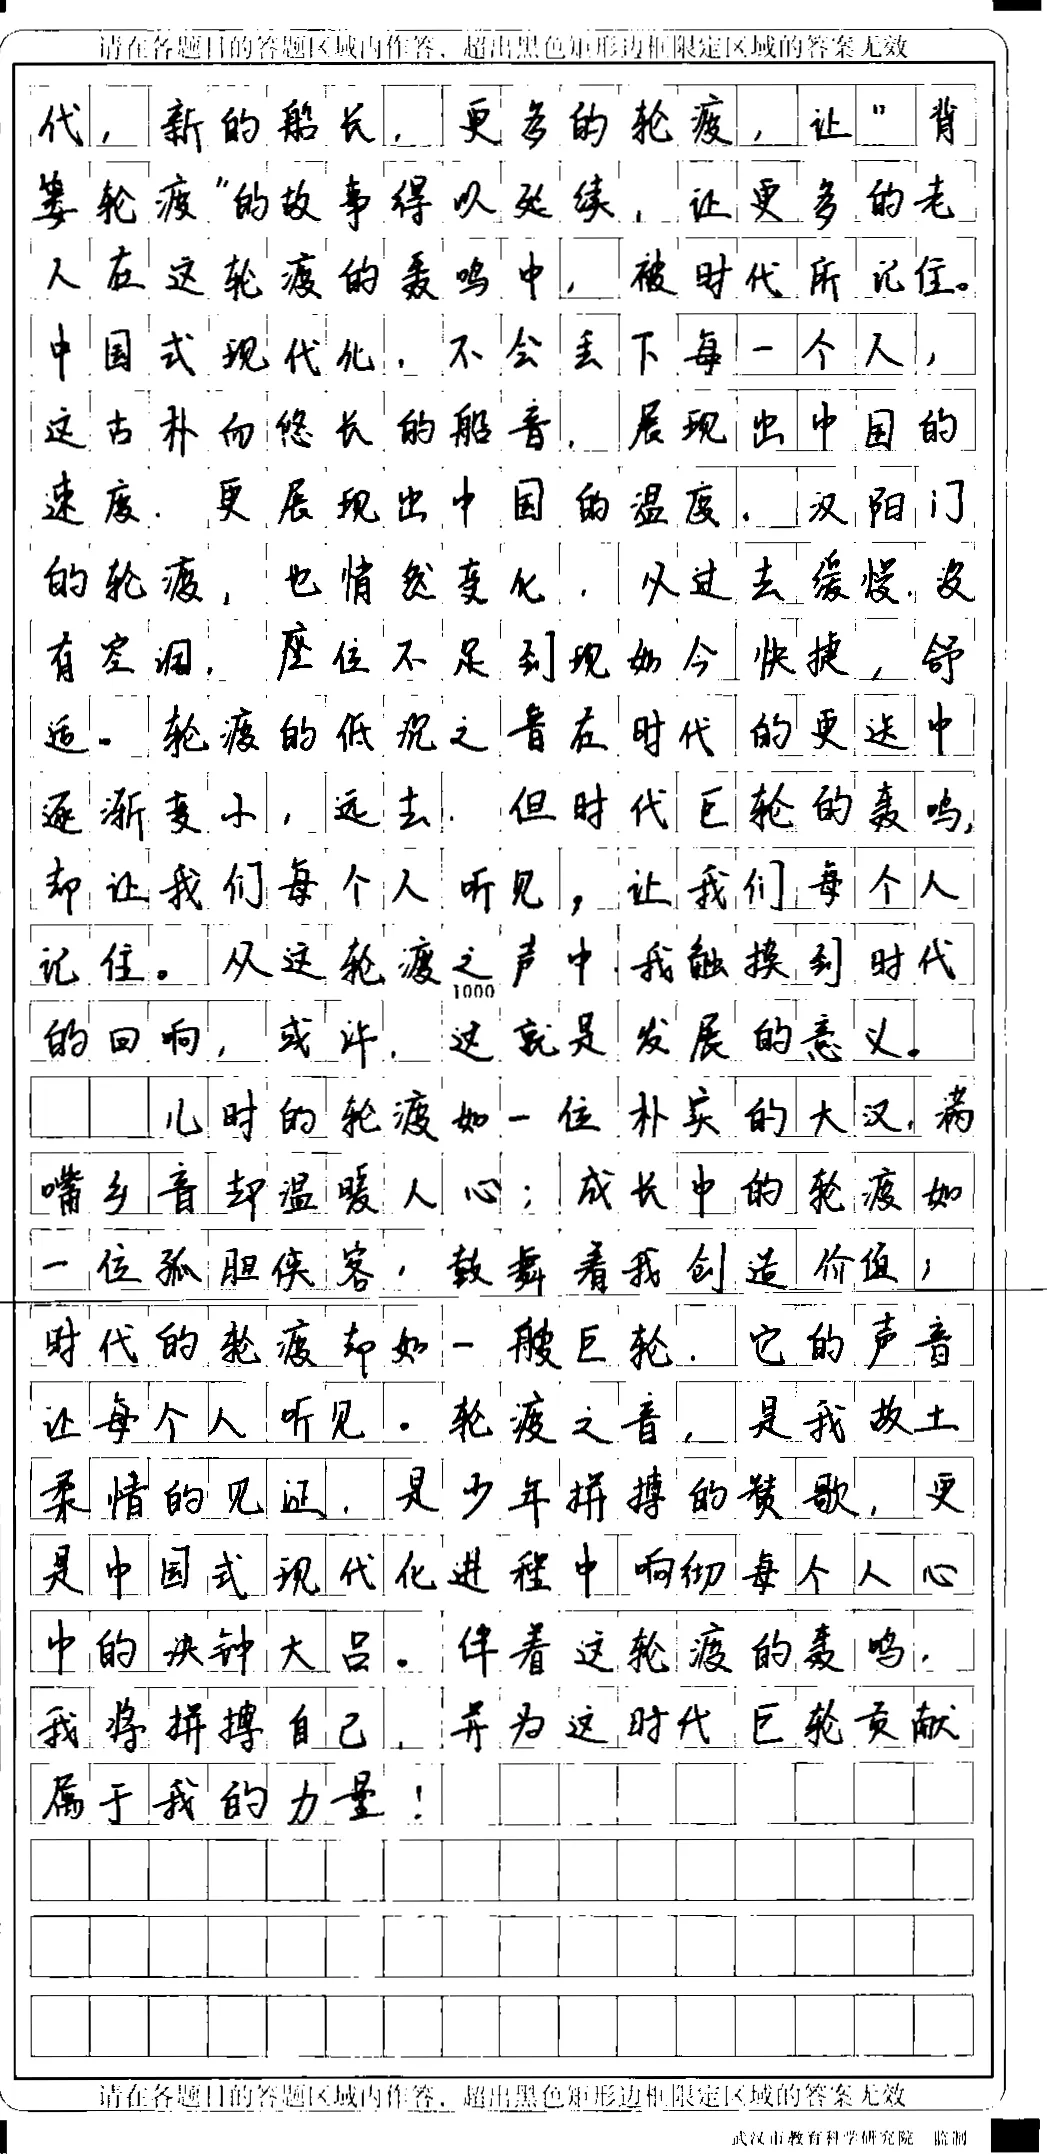 请在各题目的答题区域内作答，超出黑色矩形边框限定区域的答案无效
代，新的船长，更多的轮渡，让"背
篓轮渡"的故事得以延续，让更多的老
人在这轮渡的轰鸣中，被时代所记住。
中国式现代化，不会丢下每一个人，
这古朴而悠长的船音，展现出中国的
速度，更展现出中国的温度，汉阳门
的轮渡，也悄然变化，从过去缓慢，没
有空调，座位不足到现如今快捷，舒
适。轮渡的低沉之音在时代的更迭中
逐渐变小，远去，但时代巨轮的轰鸣，
却让我们每个人听见，让我们每个人
记住。从这轮渡之声中，我触摸到时代
1000
的回响，或许，这就是发展的意义。
儿时的轮渡如一位朴实的大汉，满
嘴乡音却温暖人心；成长中的轮渡如
一位孤胆侠客，鼓舞着我创造价值；
时代的轮渡却如一艘巨轮，它的声音
让每个人听见。轮渡之音，是我故土
柔情的见证，是少年拼搏的赞歌，更
是中国式现代化进程中响彻每个人心
中的决钟大吕。伴着这轮渡的轰鸣，
我将拼搏自己，并为这时代巨轮贡献
属于我的力量！
请在各题目的答题区域内作答，超出黑色矩形边框限定区域的答案无效
武汉市教育科学研究院 监制